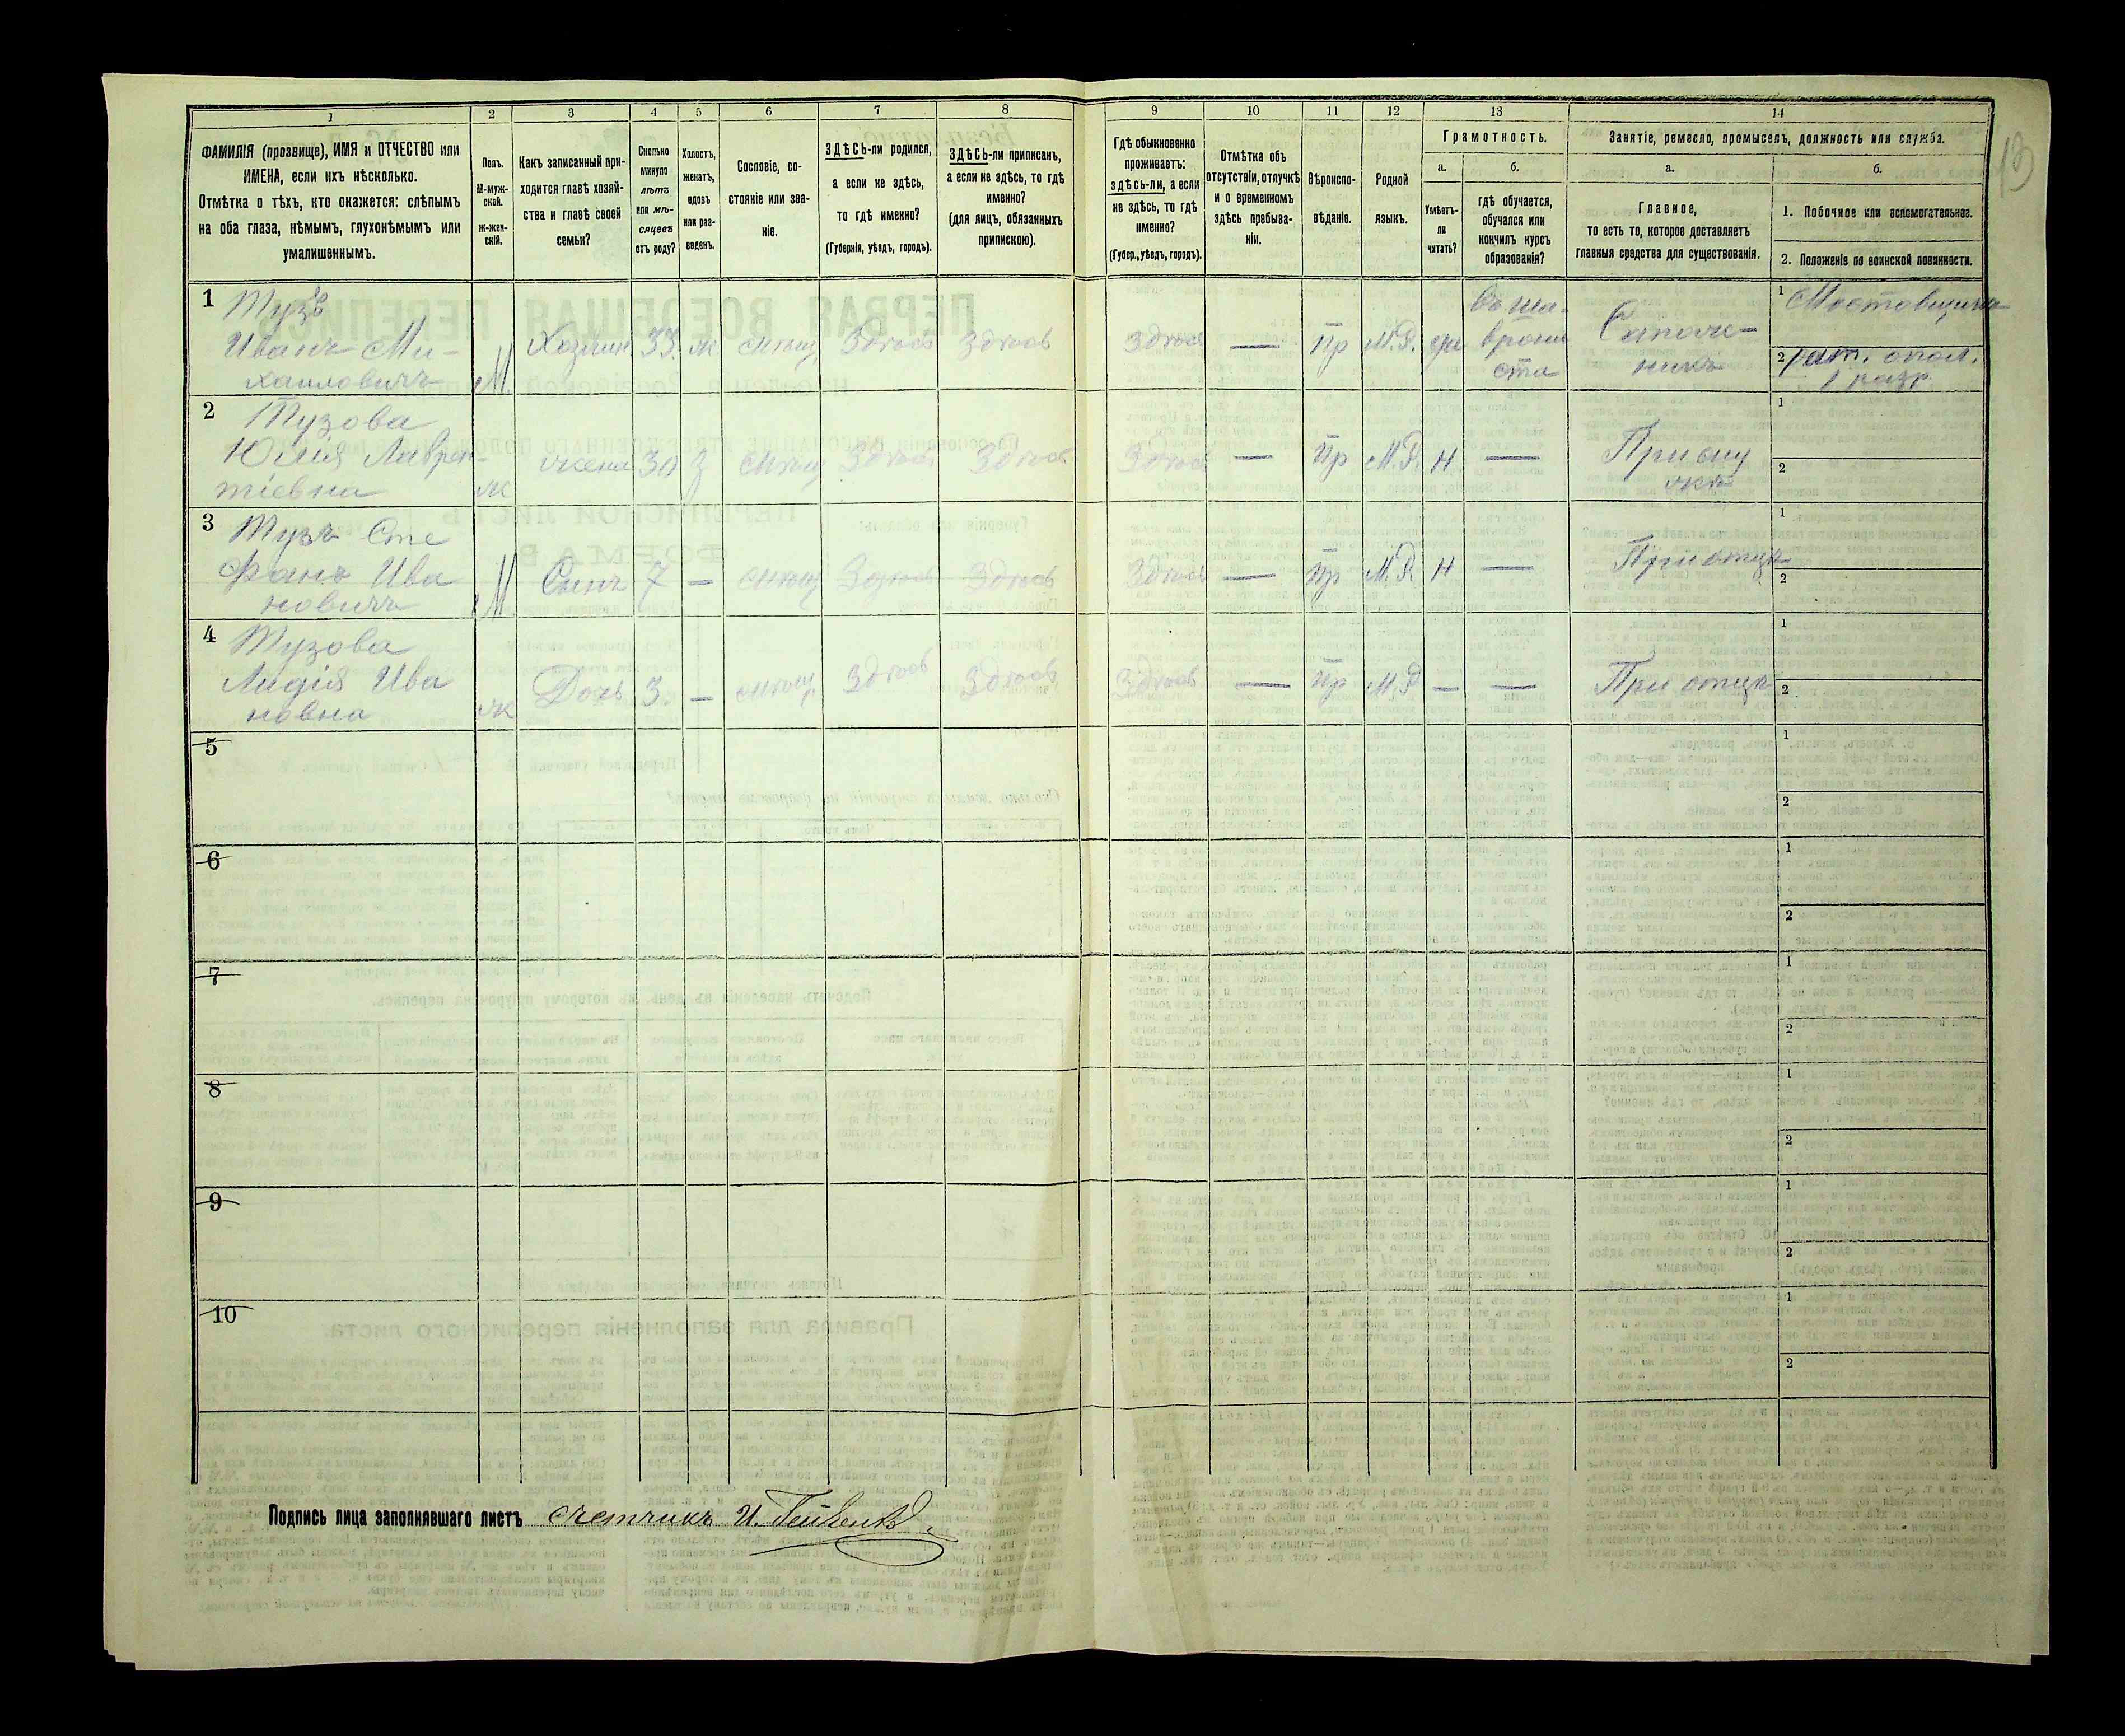 1 2 3 4 5 6 7 8 9 10 11 12 13 14
ФАМИЛІЯ (прозвище), ИМЯ и ОТЧЕСТВО или
ИМЕНА, если ихъ нѣсколько.
Отмѣтка о тѣхъ, кто окажется: слѣпымъ
на оба глаза, нѣмымъ, глухонѣмымъ или
умалишеннымъ.
Полъ.
М-муж-
ской.
ж-жен-
скій.
Какъ записанный при-
ходится главѣ хозяй-
ства и главѣ своей
семьи?
Сколько
минуло
лѣтъ
или мѣ-
сяцевъ
отъ роду?
Холостъ,
женатъ,
вдовъ
или раз-
веденъ.
Сословіе, со-
стояніе или зва-
ніе.
ЗДѢСЬ-ли родился,
а если не здѣсь,
то гдѣ именно?
(Губернія, уѣздъ, городъ).
ЗДѢСЬ-ли приписанъ,
а если не здѣсь, то гдѣ
именно?
(для лицъ, обязанныхъ
припискою).
Гдѣ обыкновенно
проживаетъ:
здѣсь-ли, а если
не здѣсь, то гдѣ
именно?
(Губер., уѣздъ, городъ).
Отмѣтка объ
отсутствіи, отлучкѣ
и о временномъ
здѣсь пребыва-
ніи.
Вѣроиспо-
вѣданіе.
Родной
языкъ.
Грамотность.
а.
Умѣетъ-
ли
читать?
б.
гдѣ обучается,
обучался или
кончилъ курсъ
образованія?
Занятіе, ремесло, промыселъ, должность или служба.
а.
Главное,
то есть то, которое доставляетъ
главныя средства для существованія.
б.
1. Побочное или вспомогательное.
2. Положеніе по воинской повинности.
13
1 Тузъ
Иванъ Ми-
хаиловичъ
М. Хозяин 33 ж мѣщ Здѣсь Здѣсь Здѣсь — Пр М.Р. да
Сапож-
никъ
1
2 рат. опол.
1 разр
2 Тузова
Юлія Лаврен-
тіевна
ж жена 30 З мѣщ Здѣсь Здѣсь Здѣсь — Пр М.Р. н —
При му
жѣ
1
2
3 Тузъ Сте
фанъ Ива
новичъ
М Сынъ 7 — мѣщ Здѣсь Здѣсь Здѣсь — Пр М.Р. н — При отцѣ
1
2
4 Тузова
Лидія Ива
новна
ж Дочь 3. — мѣщ Здѣсь Здѣсь Здѣсь — Пр М.Р — — При отцѣ
1
2
5
1
2
6
1
2
7
1
2
8
1
2
9
1
2
10
1
2
Подпись лица заполнявшаго листъ счетчикъ И.